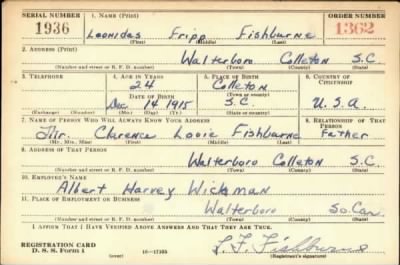 SERIAL NUMBER 1. NAME (Print) ORDER NUMBER
1936 Leonidas Fripp Fishburne 1362
(First) (Middle) (Last)
2. ADDRESS (Print)
Walterboro Colleton S.C.
(Number and street or R. F. D. number) (Town) (County) (State)
3. TELEPHONE 4. AGE IN YEARS 5. PLACE OF BIRTH 6. COUNTRY OF CITIZENSHIP
24 Colleton
DATE OF BIRTH (Town or county)
Dec 14 1915 S.C. U.S.A.
(Exchange) (Number) (Mo.) (Day) (Yr.) (State or country)
7. NAME OF PERSON WHO WILL ALWAYS KNOW YOUR ADDRESS 8. RELATIONSHIP OF THAT PERSON
Mr. Clarence Louie Fishburne Father
(Mr., Mrs., Miss) (First) (Middle) (Last)
9. ADDRESS OF THAT PERSON
Walterboro Colleton S.C.
(Number and street or R. F. D. number) (Town) (County) (State)
10. EMPLOYER'S NAME
Albert Harvey Wickman
11. PLACE OF EMPLOYMENT OR BUSINESS
Walterboro So.Car.
(Number and street or R. F. D. number) (Town) (County) (State)
I AFFIRM THAT I HAVE VERIFIED ABOVE ANSWERS AND THAT THEY ARE TRUE.
REGISTRATION CARD
D. S. S. Form 1 (over) 16-17105 L. F. Fishburne
(Registrant's signature)